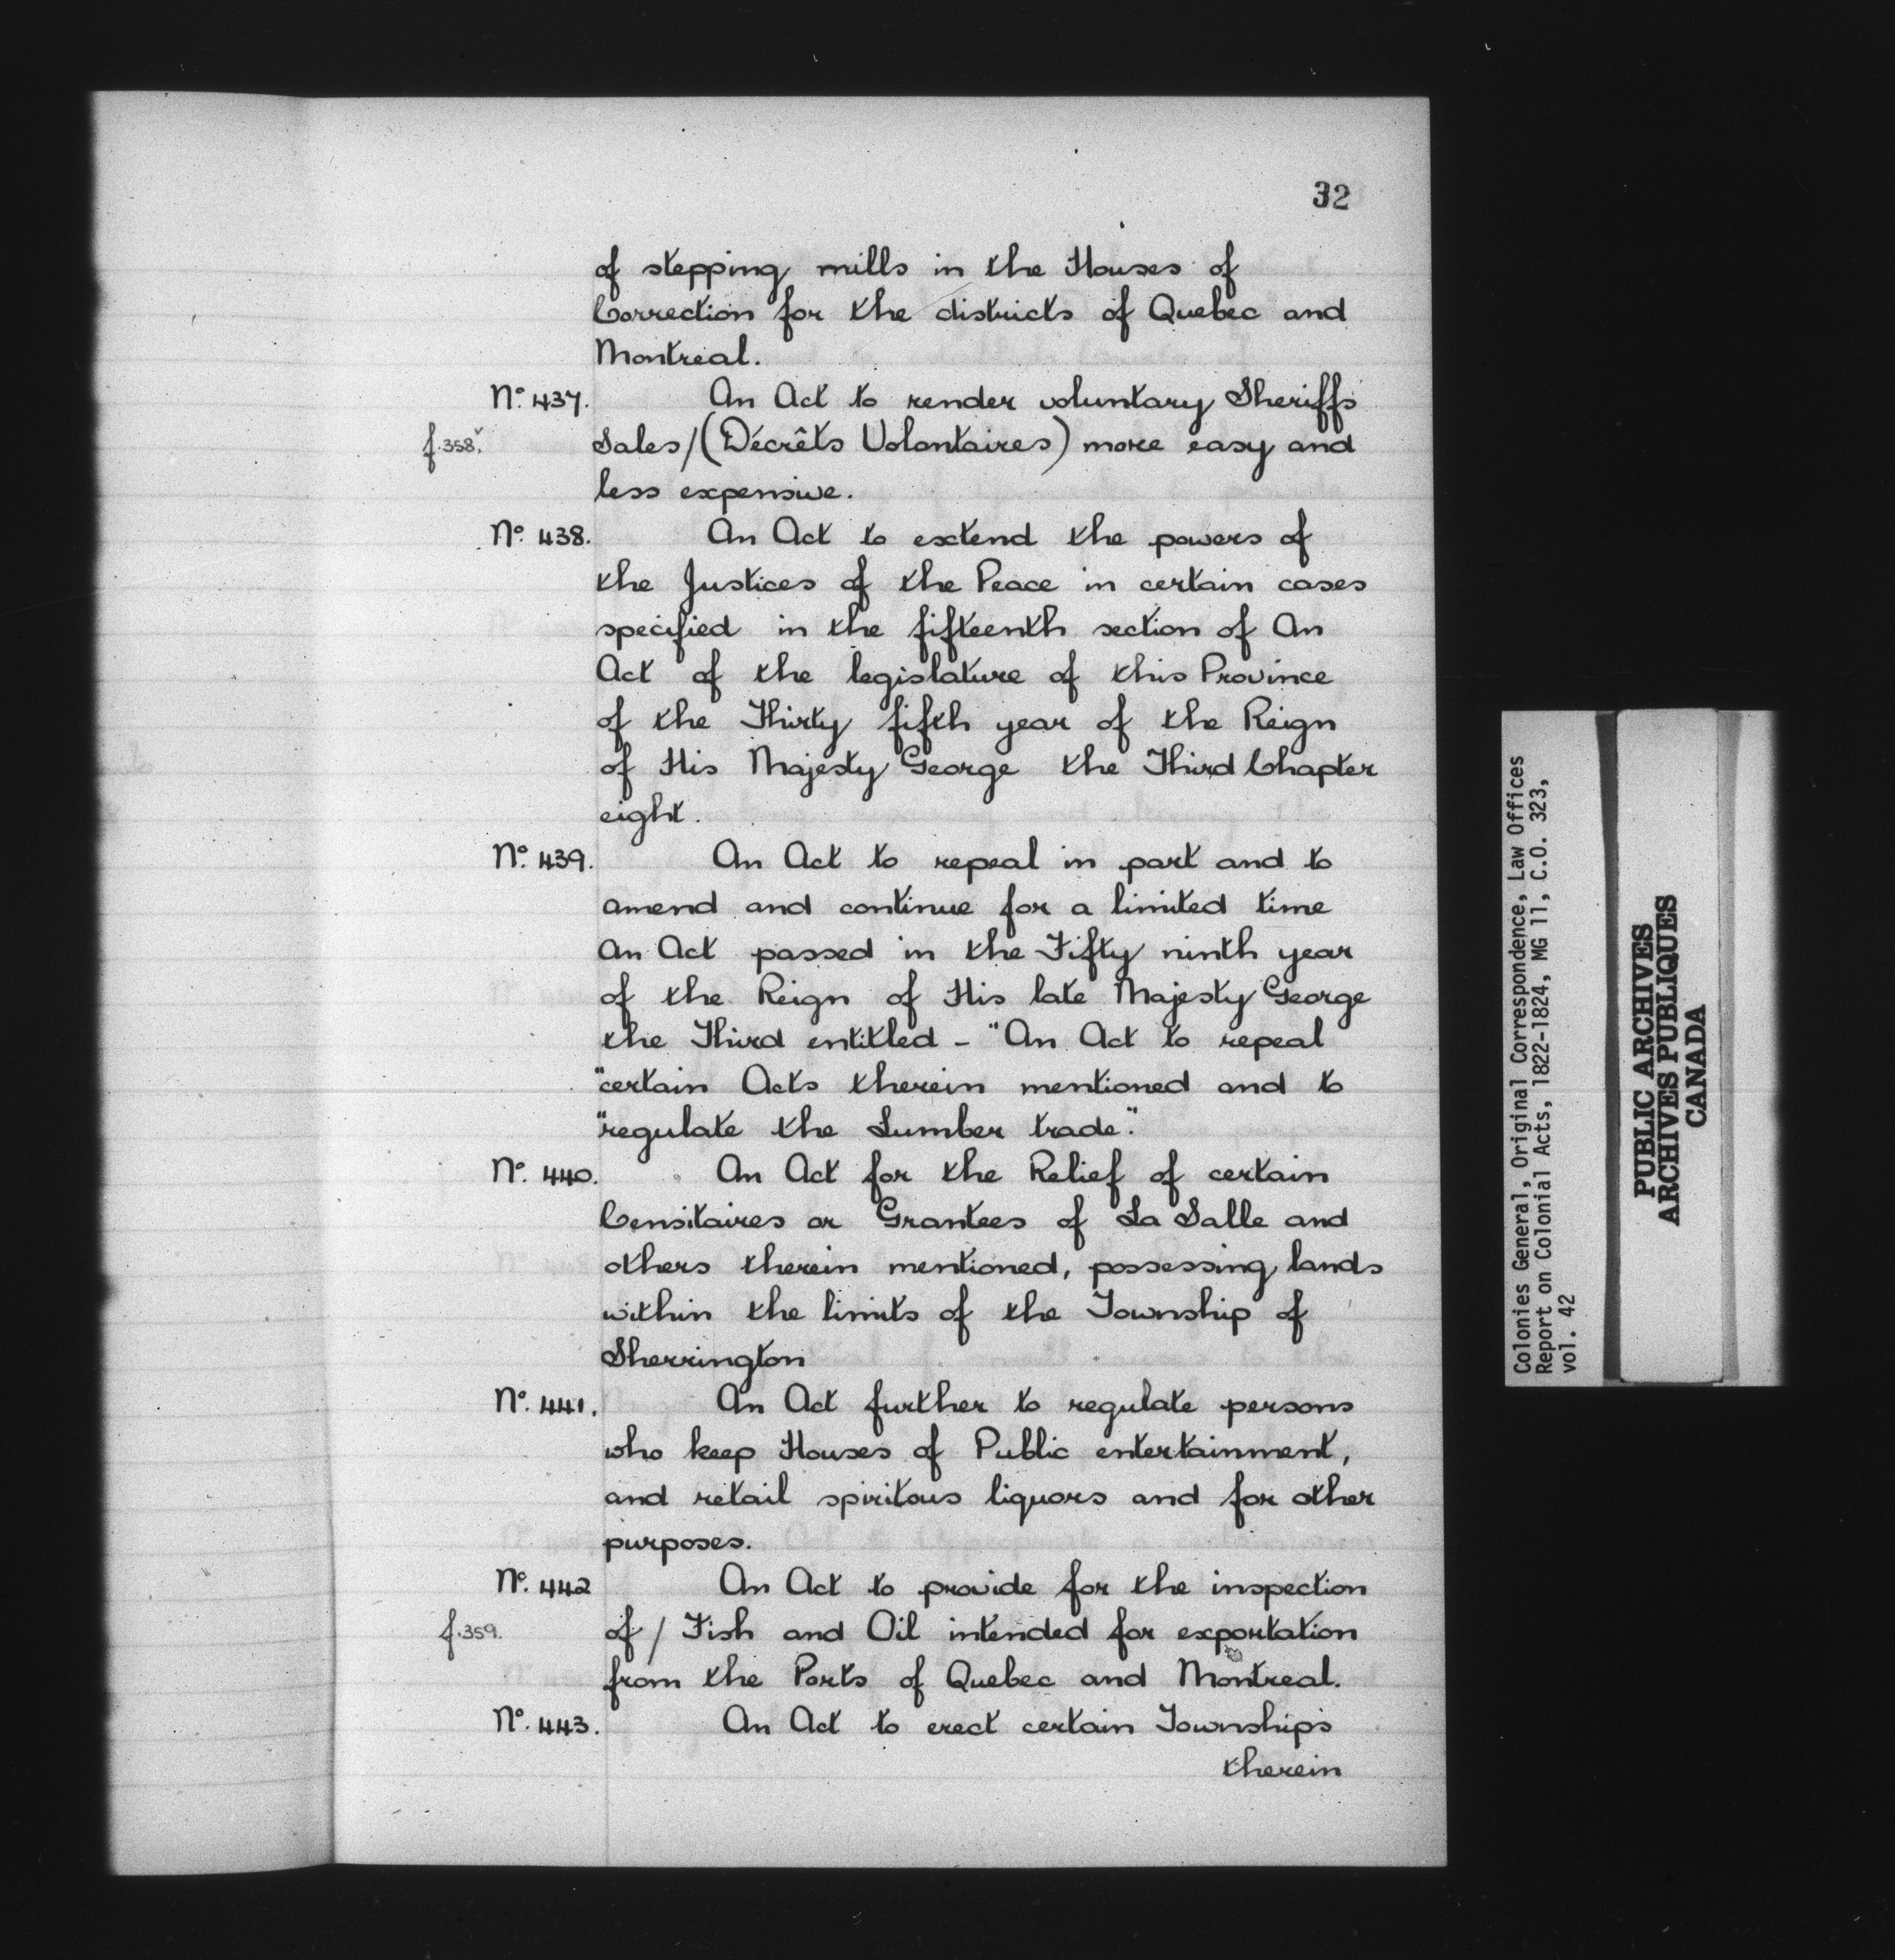 32
of stepping mills in the Houses of
Correction for the districts of Quebec and
Montreal.
No. 437. An Act to render voluntary Sheriffs
f.358v. Sales/(Décrêts Volontaires) more easy and
less expensive.
No. 438. An Act to extend the powers of
the Justices of the Peace in certain cases
specified in the fifteenth section of An
Act of the legislature of this Province
of the Thirty fifth year of the Reign
of His Majesty George the Third Chapter
eight.
No. 439. An Act to repeal in part and to
amend and continue for a limited time
An Act passed in the Fifty ninth year
of the Reign of His late Majesty George
the Third entitled - "An Act to repeal
"certain Acts therein mentioned and to
"regulate the Lumber trade."
No. 440. An Act for the Relief of certain
Censitaires or Grantees of La Salle and
others therein mentioned, possessing lands
within the limits of the Township of
Sherrington
No. 441. An Act further to regulate persons
who keep Houses of Public entertainment,
and retail spiritous liquors and for other
purposes.
No. 442 An Act to provide for the inspection
f.359. of / Fish and Oil intended for exportation
from the Ports of Quebec and Montreal.
No. 443. An Act to erect certain Townships
therein
Colonies General, Original Correspondence, Law Offices
Report on Colonial Acts, 1822-1824, MG 11, C.O. 323,
vol. 42
PUBLIC ARCHIVES
ARCHIVES PUBLIQUES
CANADA